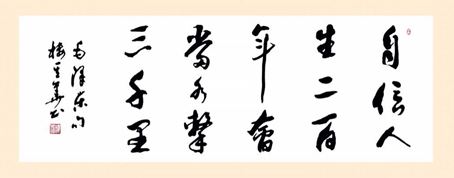 自信人
生二百
年會
當水擊
三千里
毛澤東句